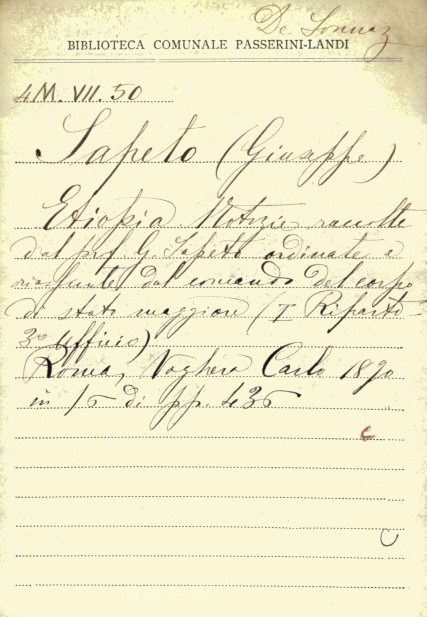 De Sonnaz
BIBLIOTECA COMUNALE PASSERINI-LANDI
4M. VII. 50
Sapeto (Giuseppe)
Etiopia Notizie raccolte
dal prof G. Sapeto ordinate e
riassunte dal comando del corpo
di stato maggiore (I Riparto
3º Ufficio)
Roma, Voghera Carlo 1890
in 16 di pp. 436
c